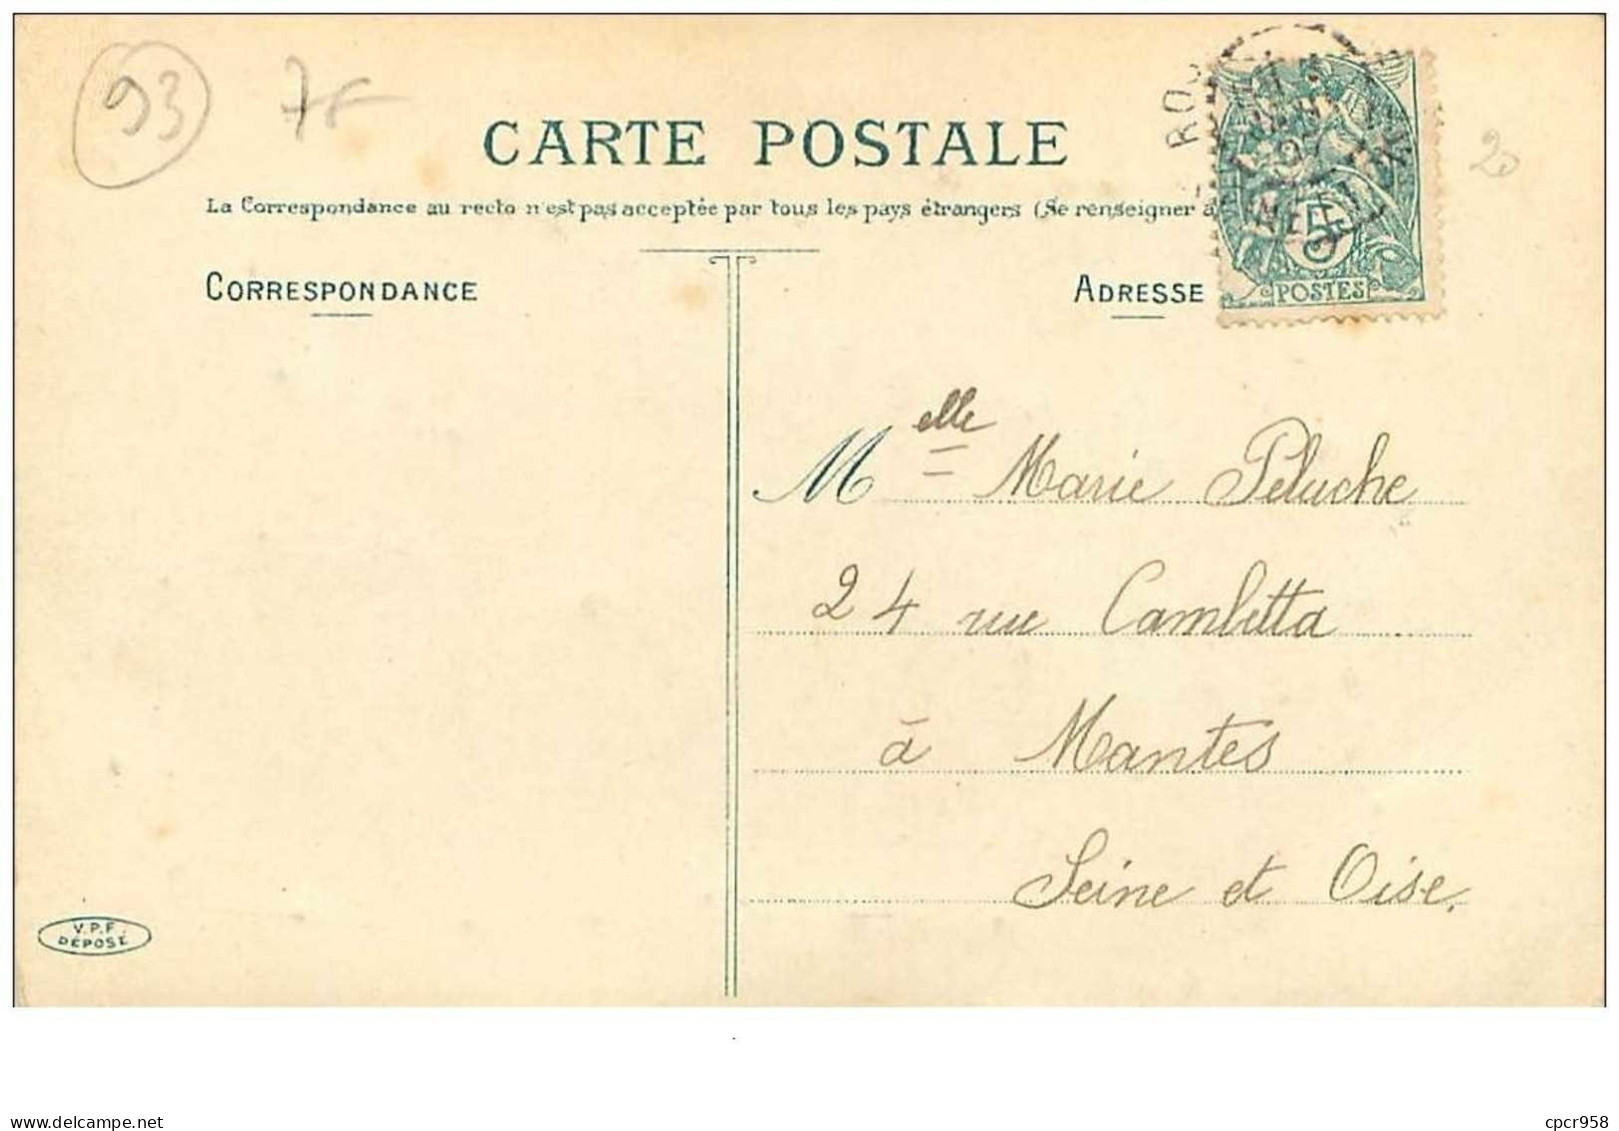 93 7f
CARTE POSTALE
La Correspondance au recto n'est pas acceptée par tous les pays étrangers (Se renseigner à
CORRESPONDANCE
ADRESSE
5
POSTES
20
Melle Marie Peluche
24 rue Cambetta
à Mantes
Seine et Oise.
V.P.F.
DÉPOSÉ
www.delcampe.net
cpcr958